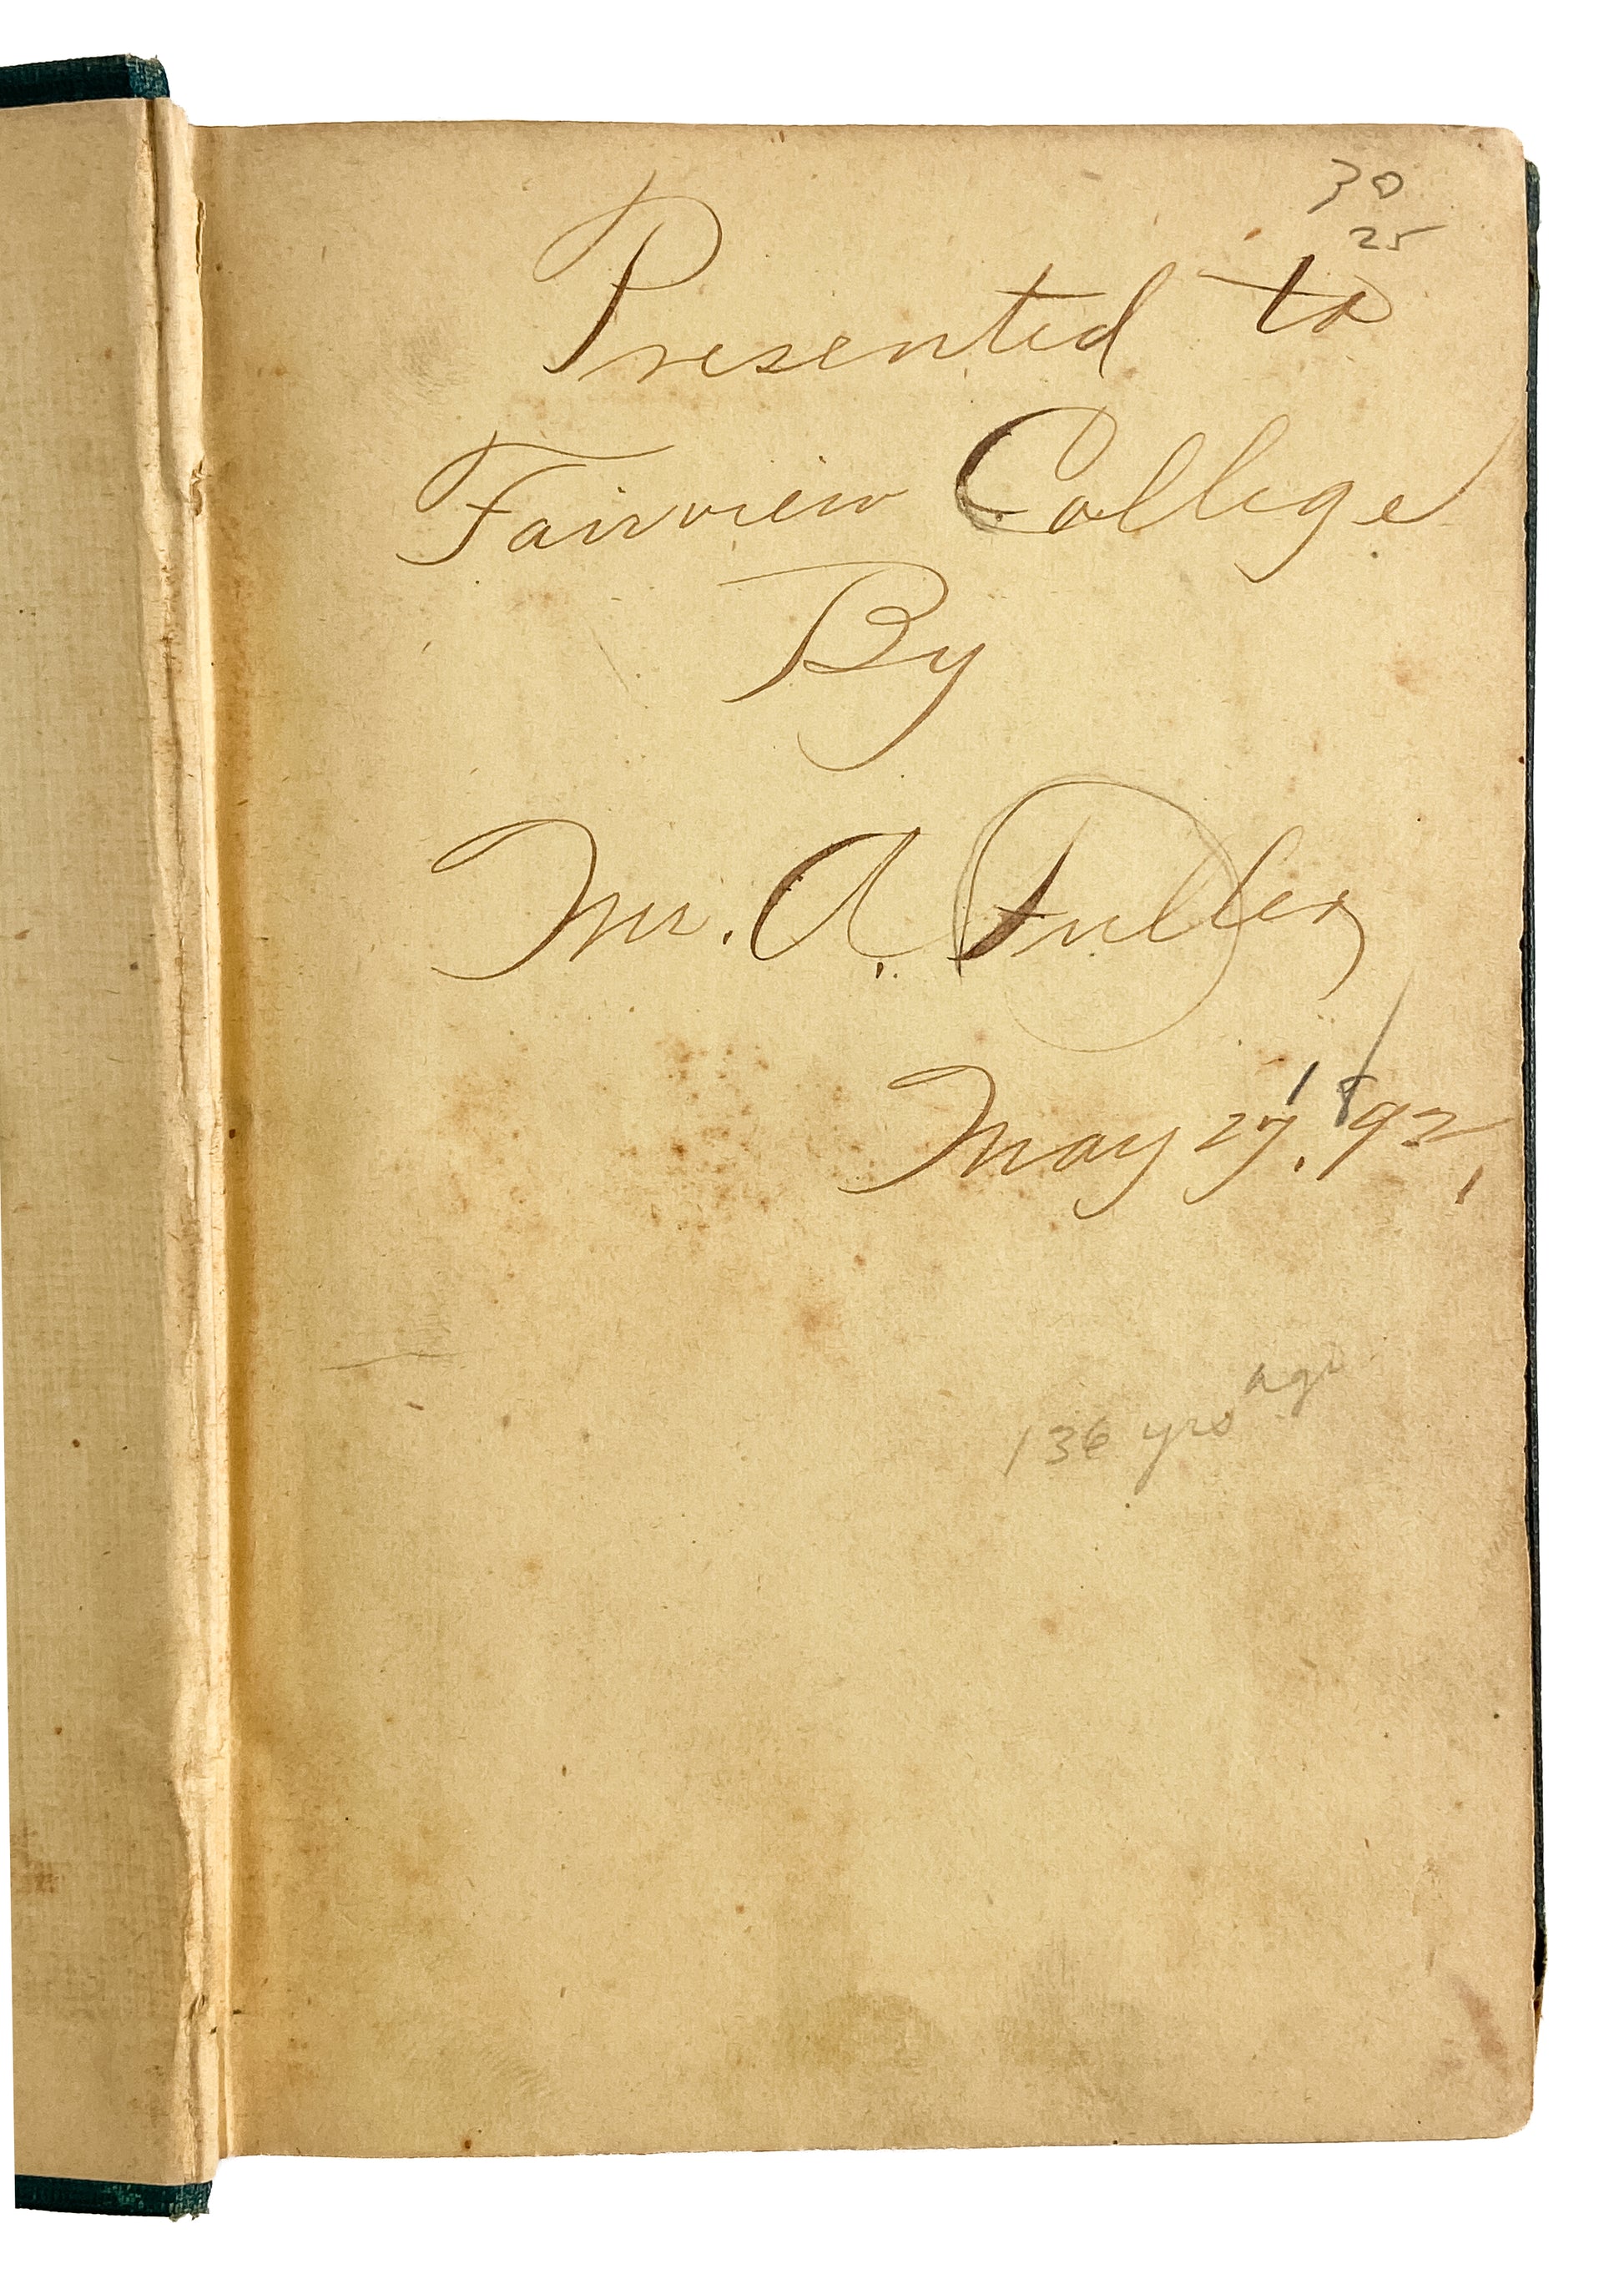 30
25
Presented to
Fairview College
By
Mr. A. Fuller
May 27, 1892,
136 yrs ago